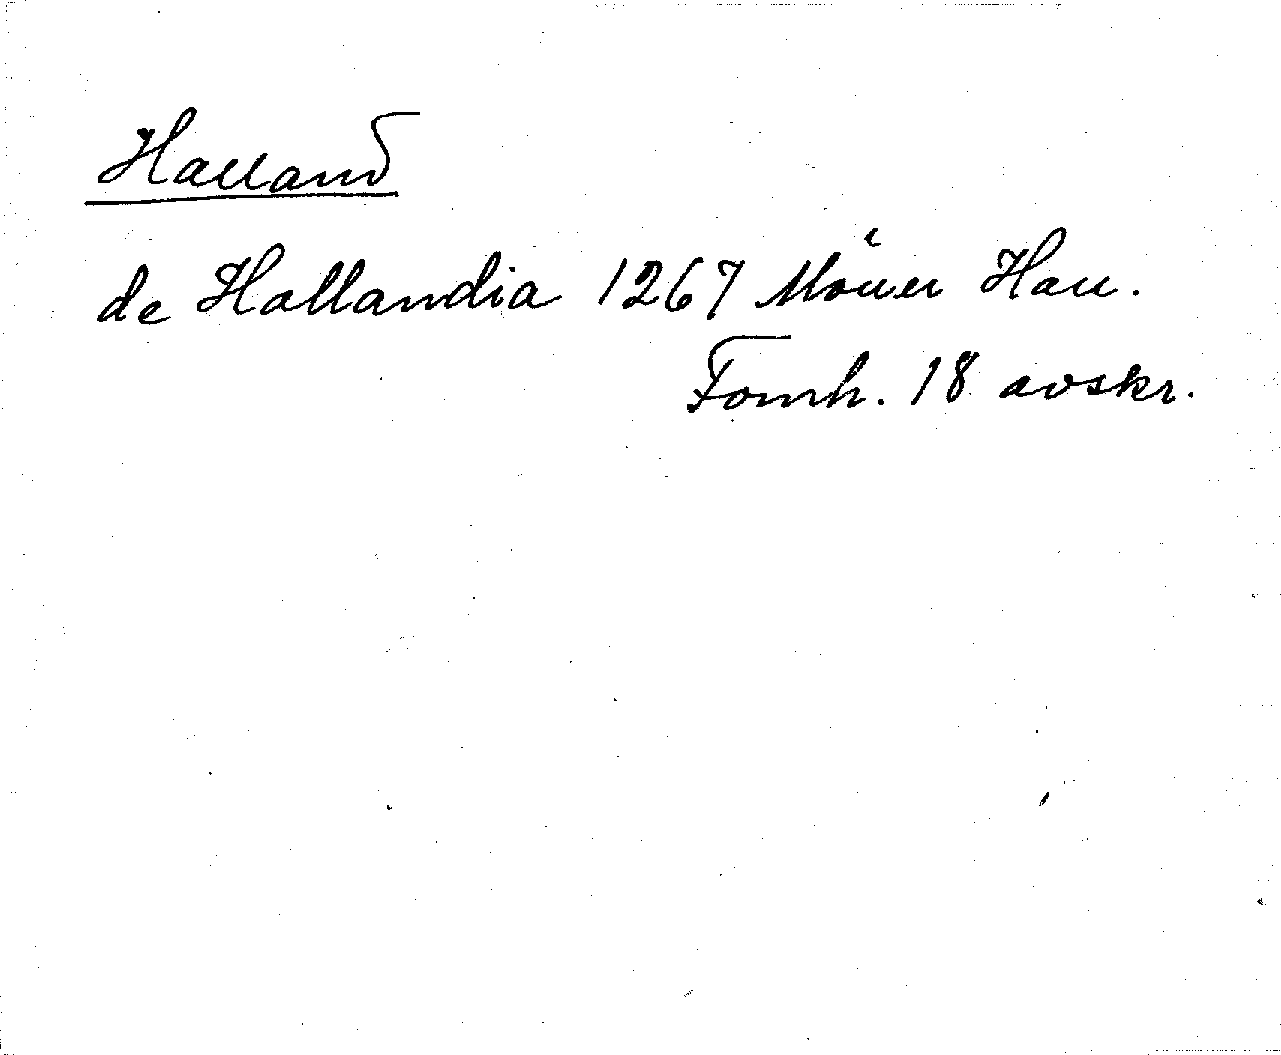 Halland
de Hallandia 1267 Möller Hall.
Fornh. 18 avskr.